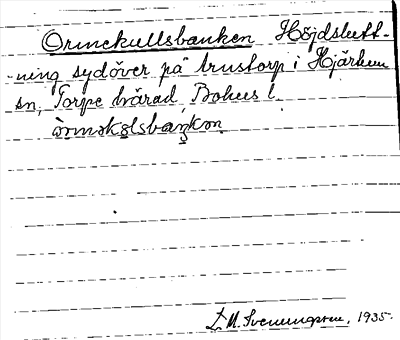 Ormekullsbanken Höjdslutt-
ning sydöver på Trustorp i Hjärtum
sn, Torpe härad, Bohus l.
òrmək*ə*lsbaŋkən
M. Svenungsson, 1935.